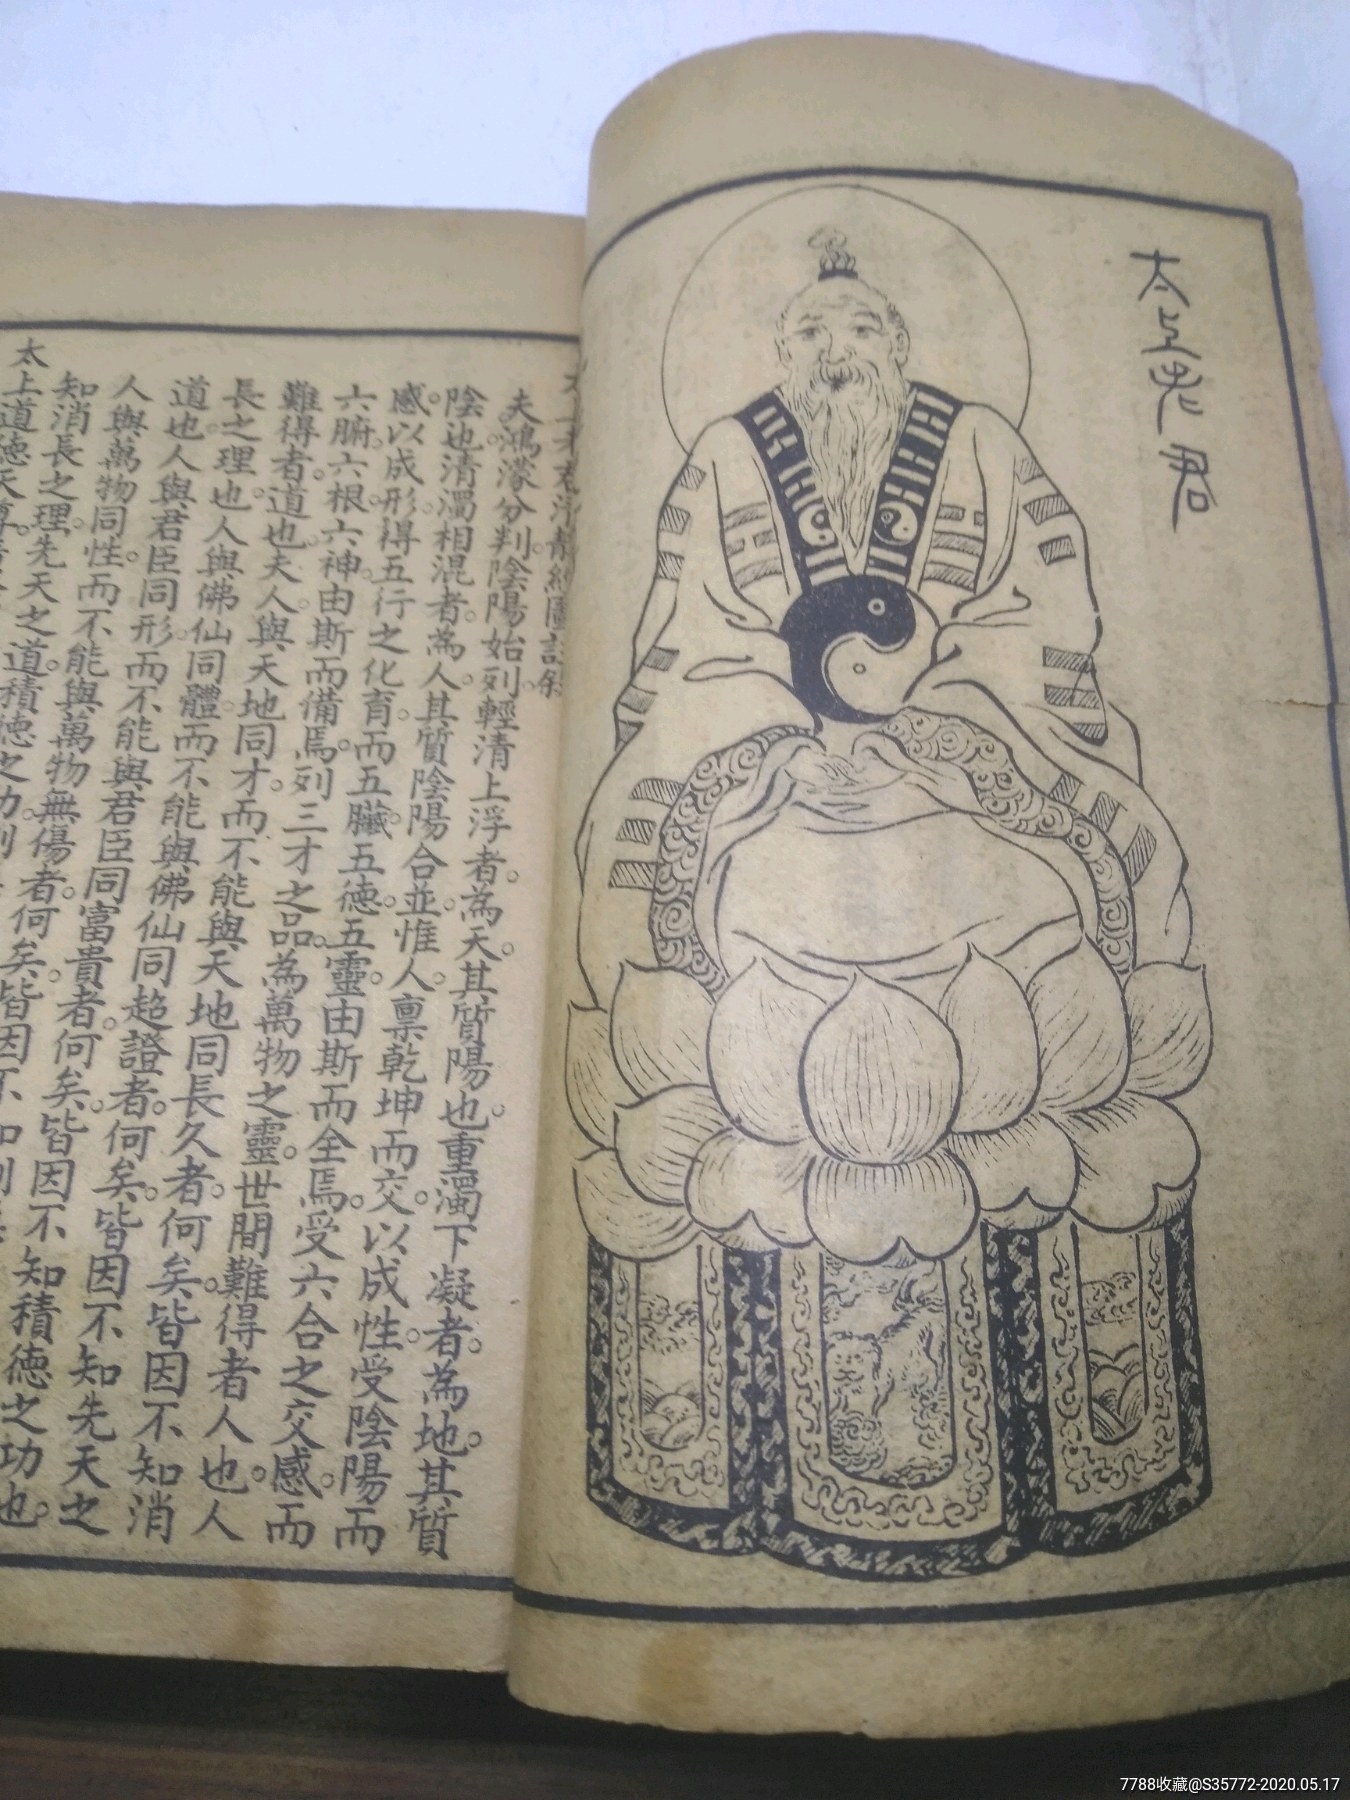 太上老君
太上老君清靜經圖註解
夫鴻濛分判。陰陽始列。輕清上浮者。為天。其質陽也。重濁下凝者。為地。其質
陰也。清濁相混者。為人。其質陰陽合並。惟人。禀乾坤而交。以成性。受陰陽而
感。以成形。得五行之化育。而五臟。五德。五靈。由斯而全焉。受六合之交感。而
六腑。六根。六神。由斯而備焉。列三才之品。為萬物之靈。世間難得者人也。人
難得者。道也。夫人。與天地同才。而不能與天地同長久者。何矣。皆因不知消
長之理也。人與佛仙同體。而不能與佛仙同超證者。何矣。皆因不知先天之
道也。人與君臣同形。而不能與君臣同富貴者。何矣。皆因不知積德之功也。
人與萬物同性。而不能與萬物無傷者。何矣。皆因不知
知消長之理。先天之道。積德之功
太上道德天尊